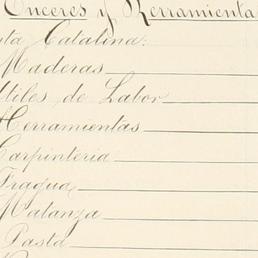 Enceres y Herramienta
ta Catalina:
Maderas
Utiles de Labor
Herramientas
Carpinteria
Fragua
Matanza
Pasta